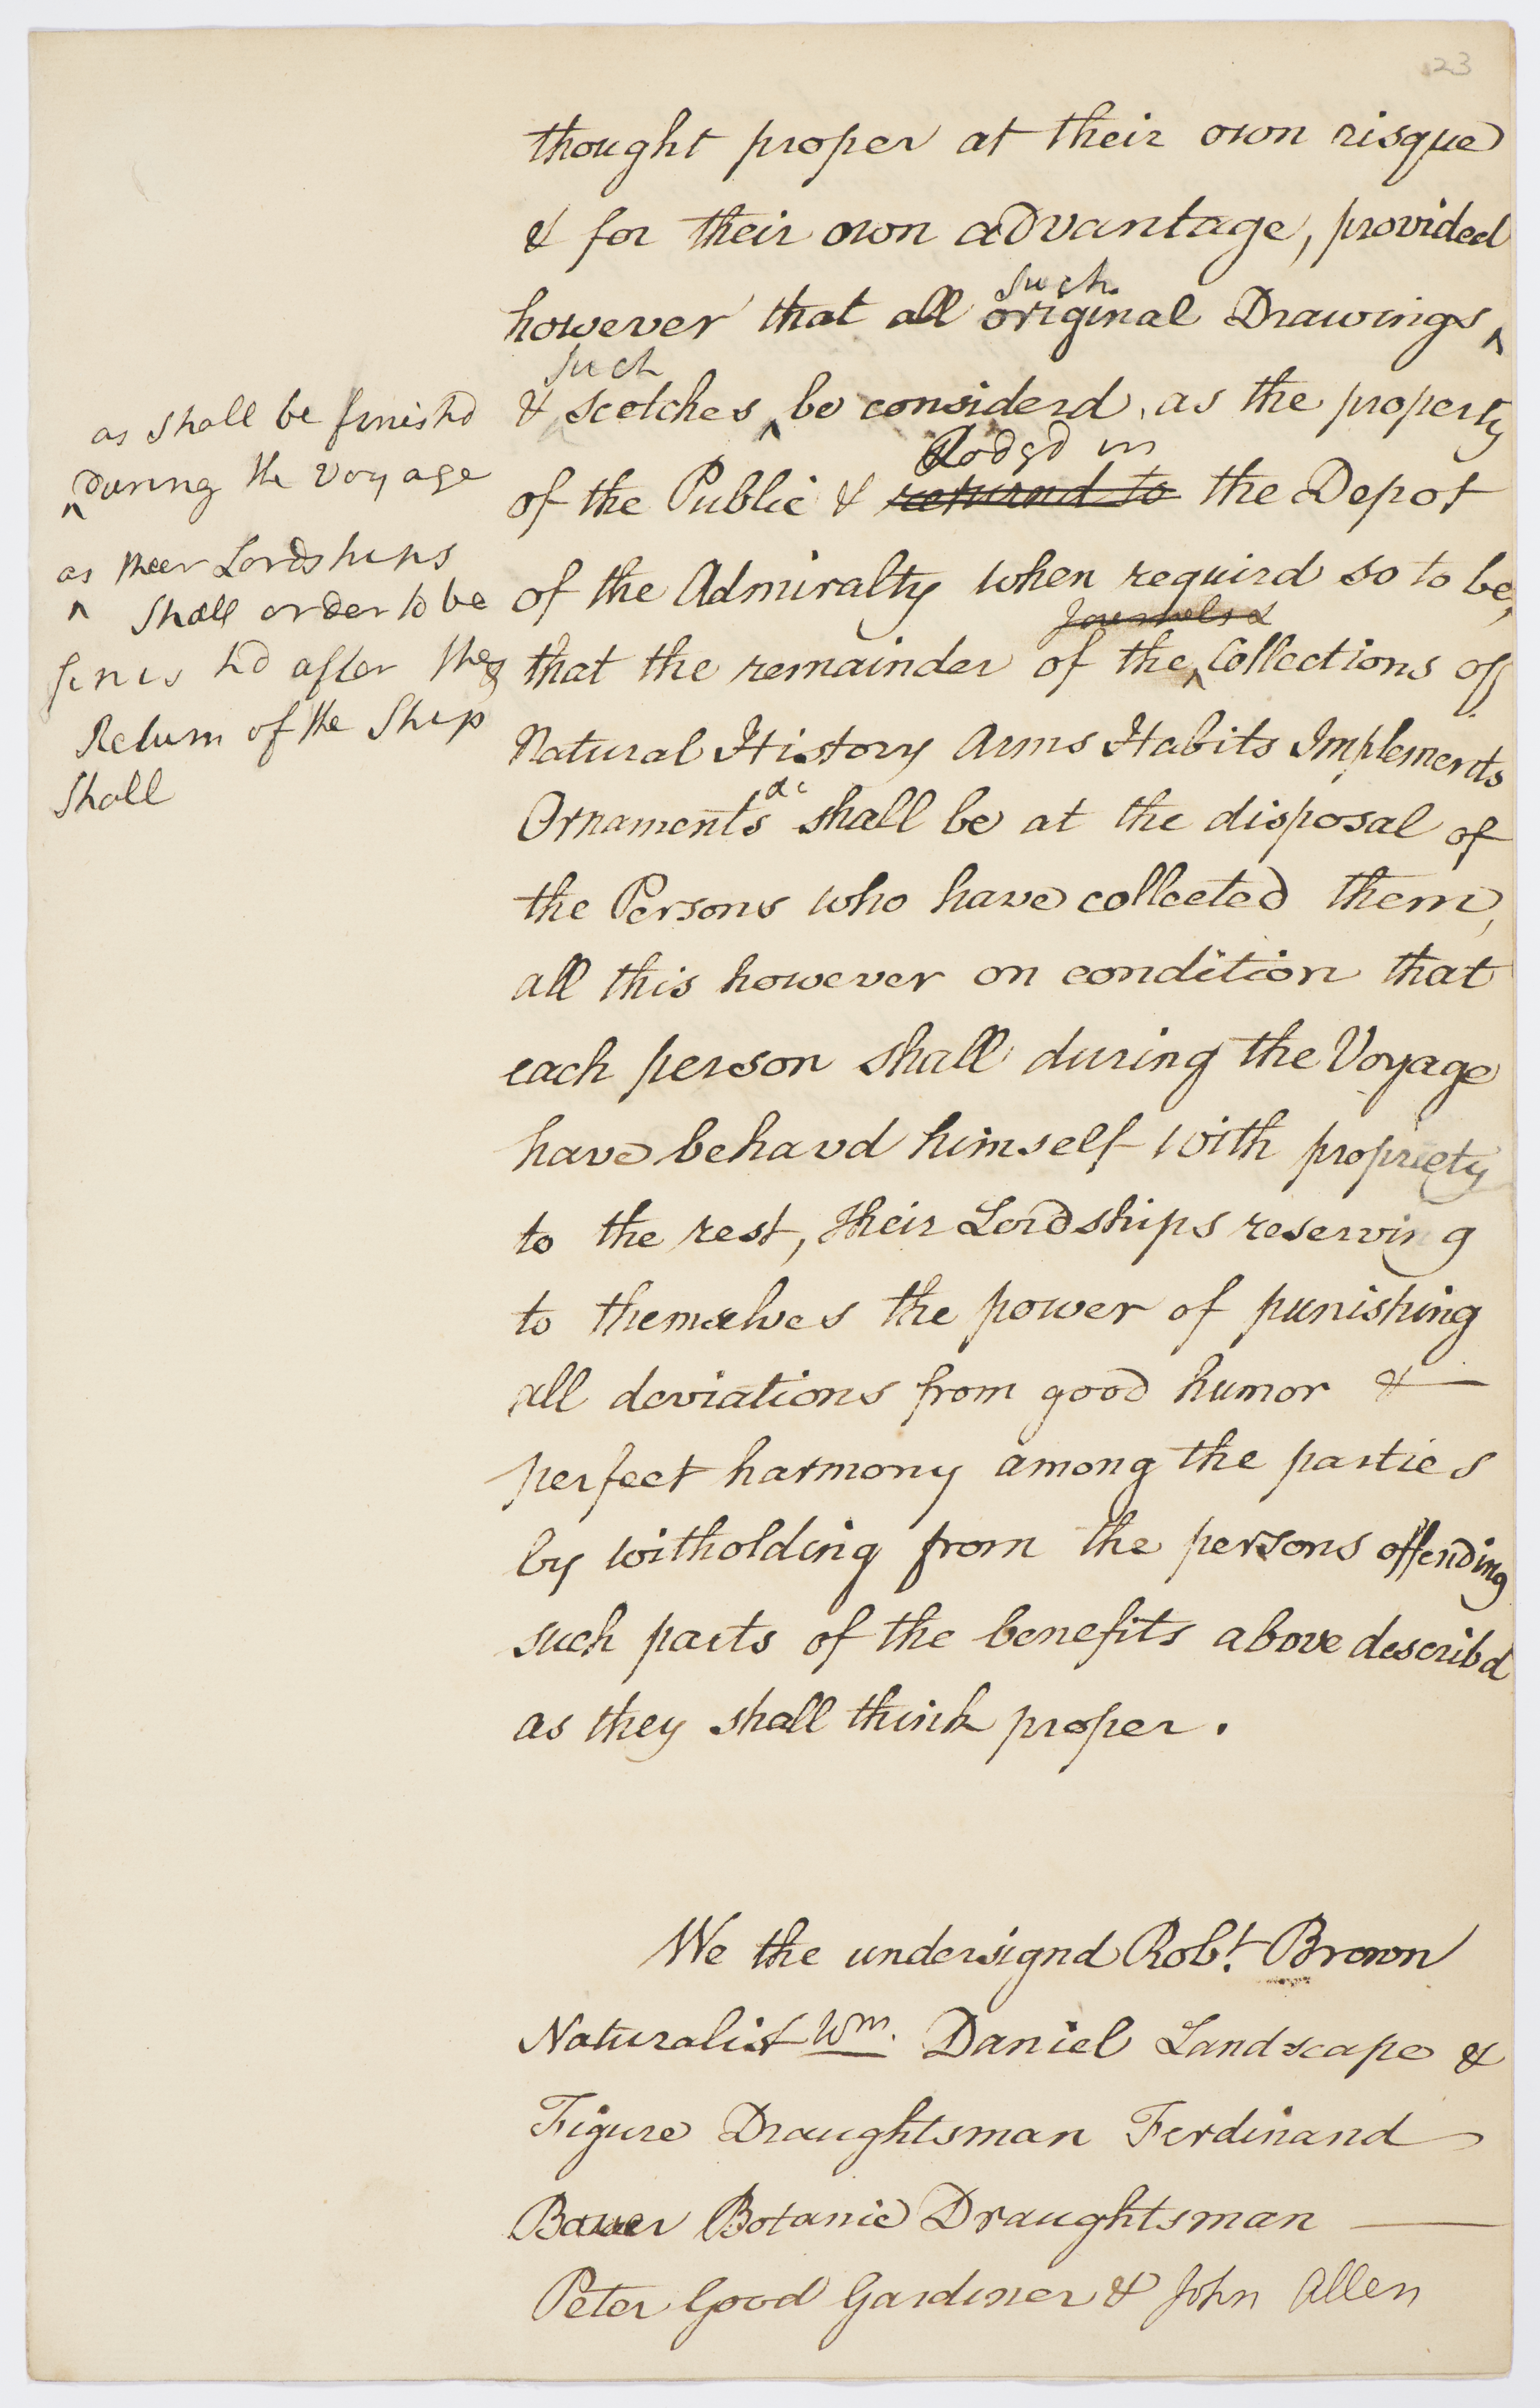 23
thought proper at their own risque
& for their own advantage, provided
such
however that all original Drawings ^
such
& scetches ^ be considerd as the property
Lodgd in
of the Public & returnd to the Depot
of the Admiralty when requird so to be,
Journals &
that the remainder of the ^ Collections of
Natural History Arms Habits Implements
Ornaments &c shall be at the disposal of
the Persons who have collected them,
all this however on condition that
each person shall during the Voyage
have behavd himself with propriety
to the rest, their Lordships reserving
to themselves the power of punishing
all deviations from good humor &
perfect harmony among the parties
by witholding from the persons offending
such parts of the benefits above describd
as they shall think proper.
as shall be finishd
^ during the voyage
as their Lordships
^ shall order to be
finishd after the
Return of the Ship
shall
We the undersignd Robt. Brown
Naturalist Wm. Daniel Landscape &
Figure Draughtsman Ferdinand
Bauer Botanic Draughtsman
Peter Good Gardiner & John Allen